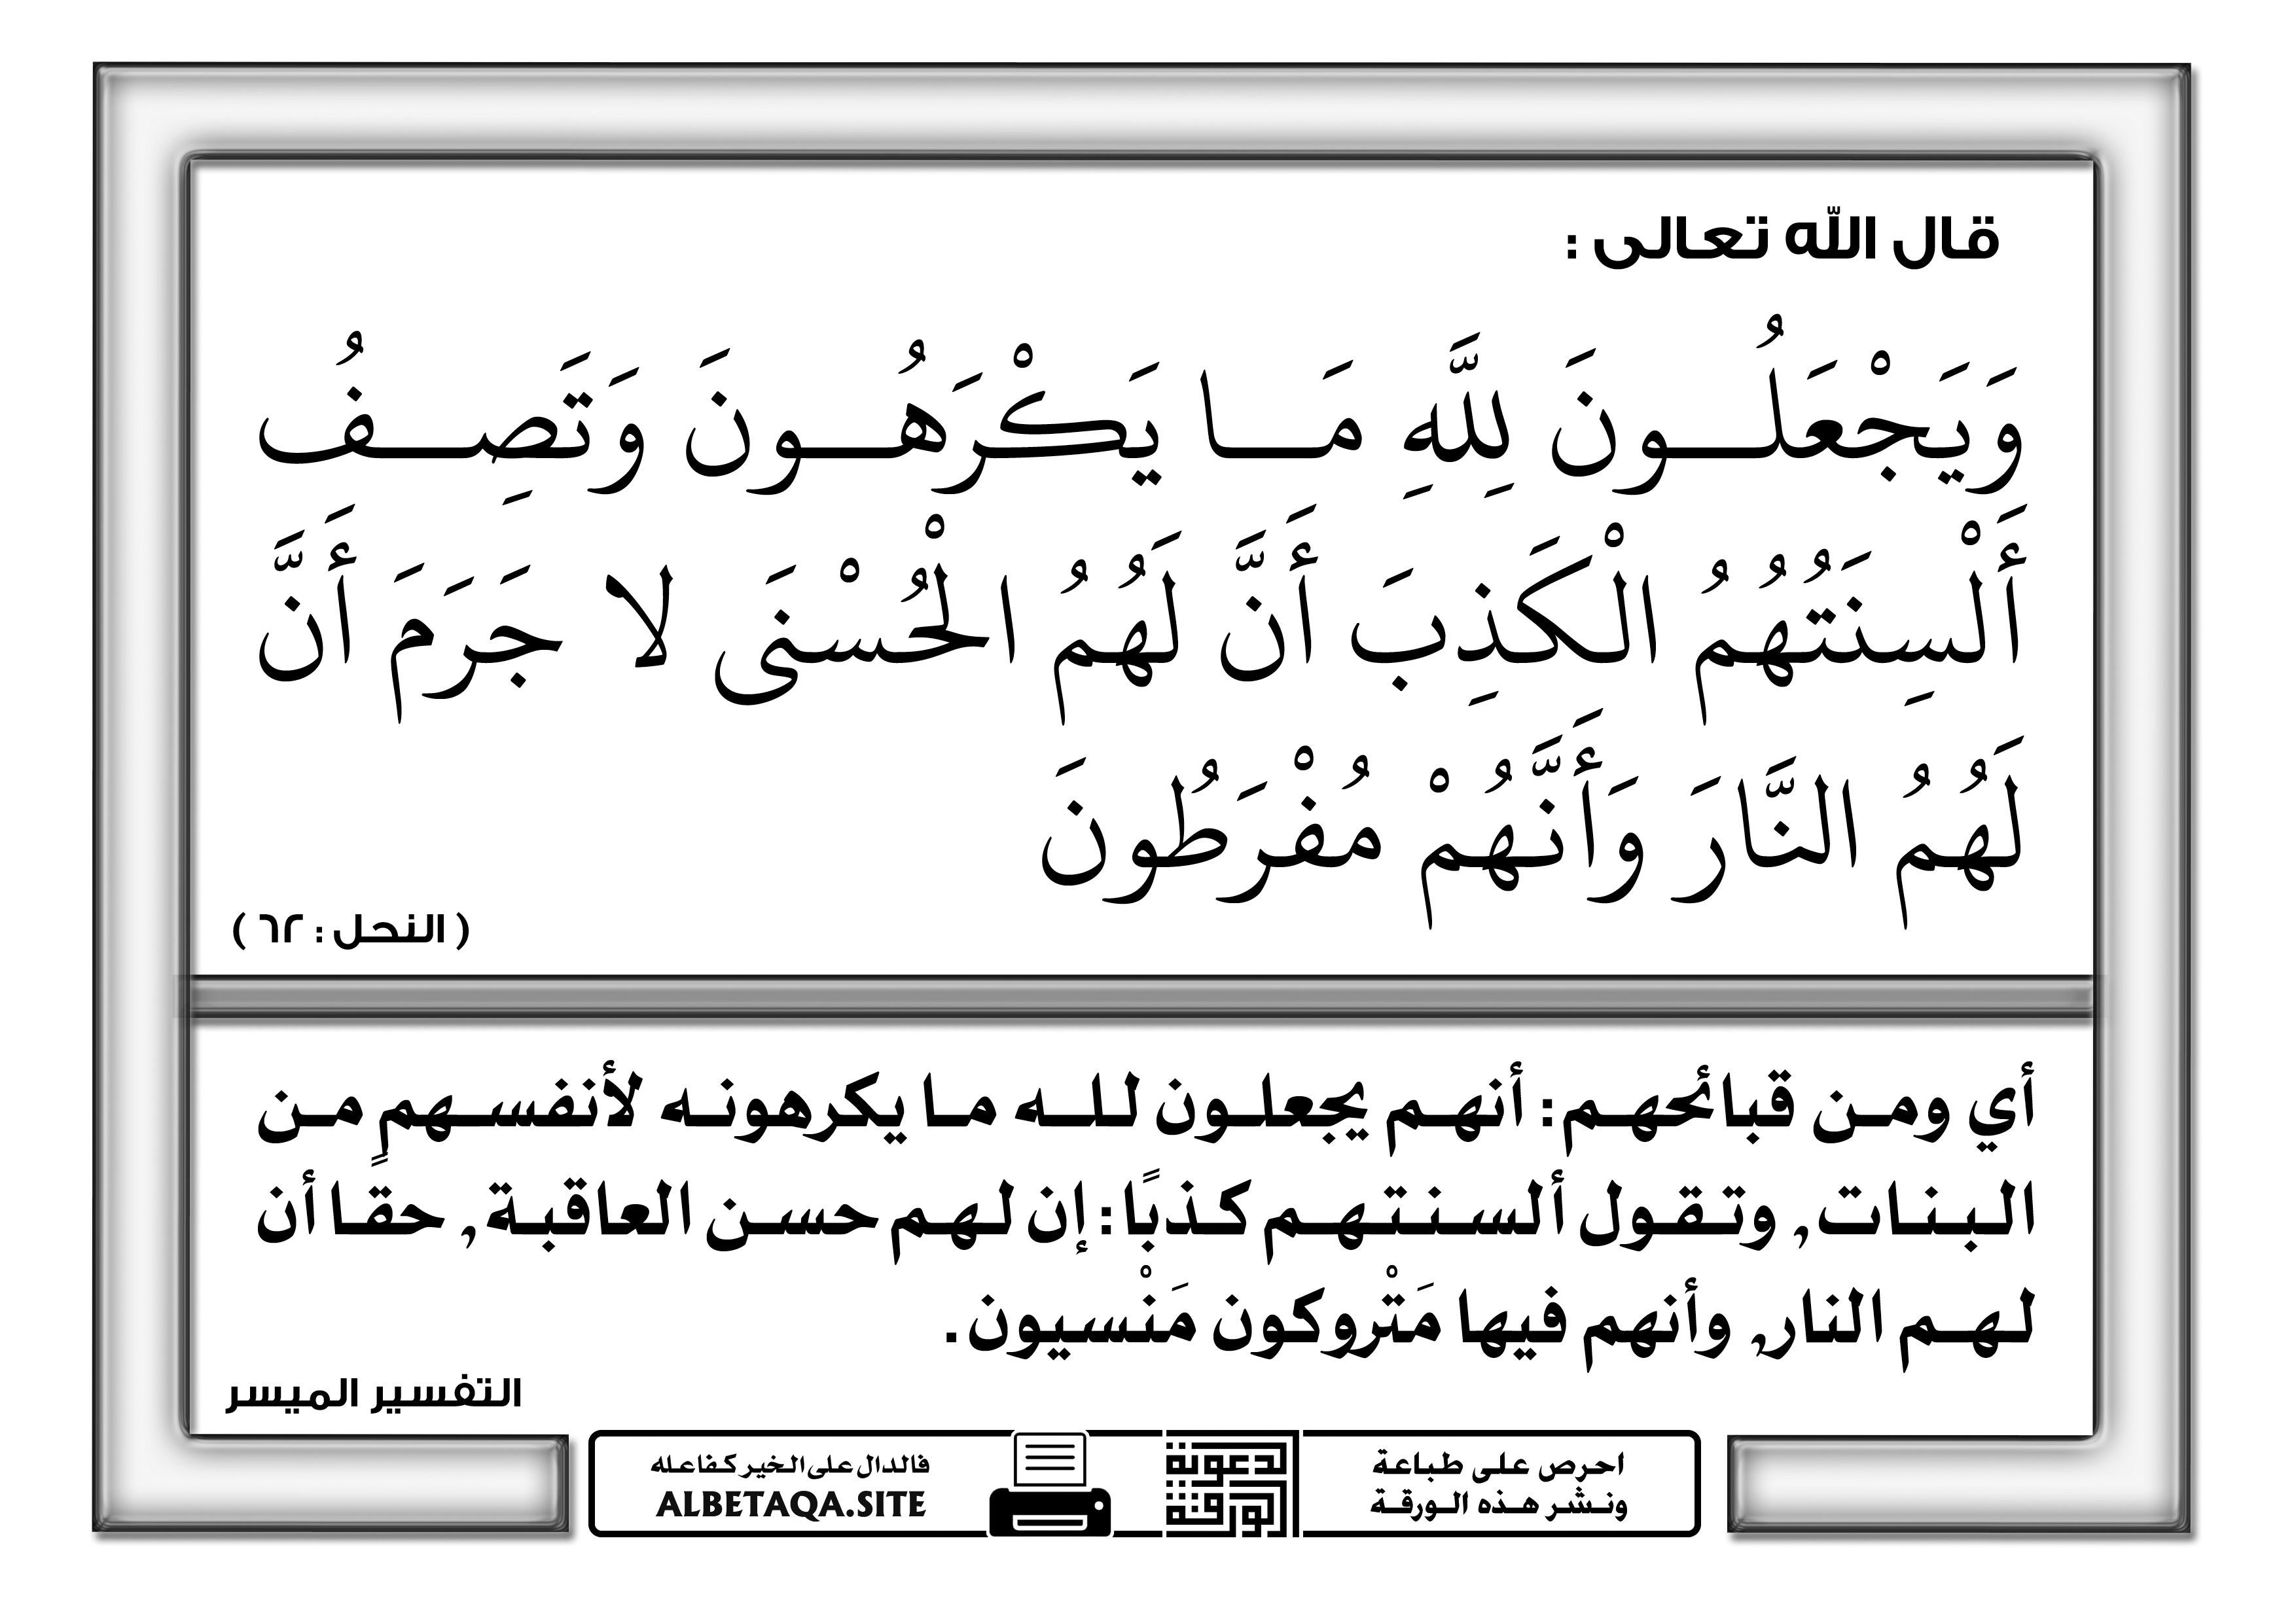 قال الله تعالى :
وَيَجْعَلُونَ لِلَّهِ مَا يَكْرَهُونَ وَتَصِفُ
أَلْسِنَتُهُمُ الْكَذِبَ أَنَّ لَهُمُ الْحُسْنَى لا جَرَمَ أَنَّ
لَهُمُ النَّارَ وَأَنَّهُمْ مُفْرَطُونَ
( النحل : ٦٢ )
أي ومن قبائحهم: أنهم يجعلون لله ما يكرهونه لأنفسهمٍ من
البنات, وتقول ألسنتهم كذبًا: إن لهم حسن العاقبة, حقًا أن
لهم النار, وأنهم فيها مَتْروكون مَنْسيون.
التفسير الميسر
احرص على طباعة
ونشر هذه الورقة
الدعوية
الورقة
فالدال على الخير كفاعله
ALBETAQA.SITE